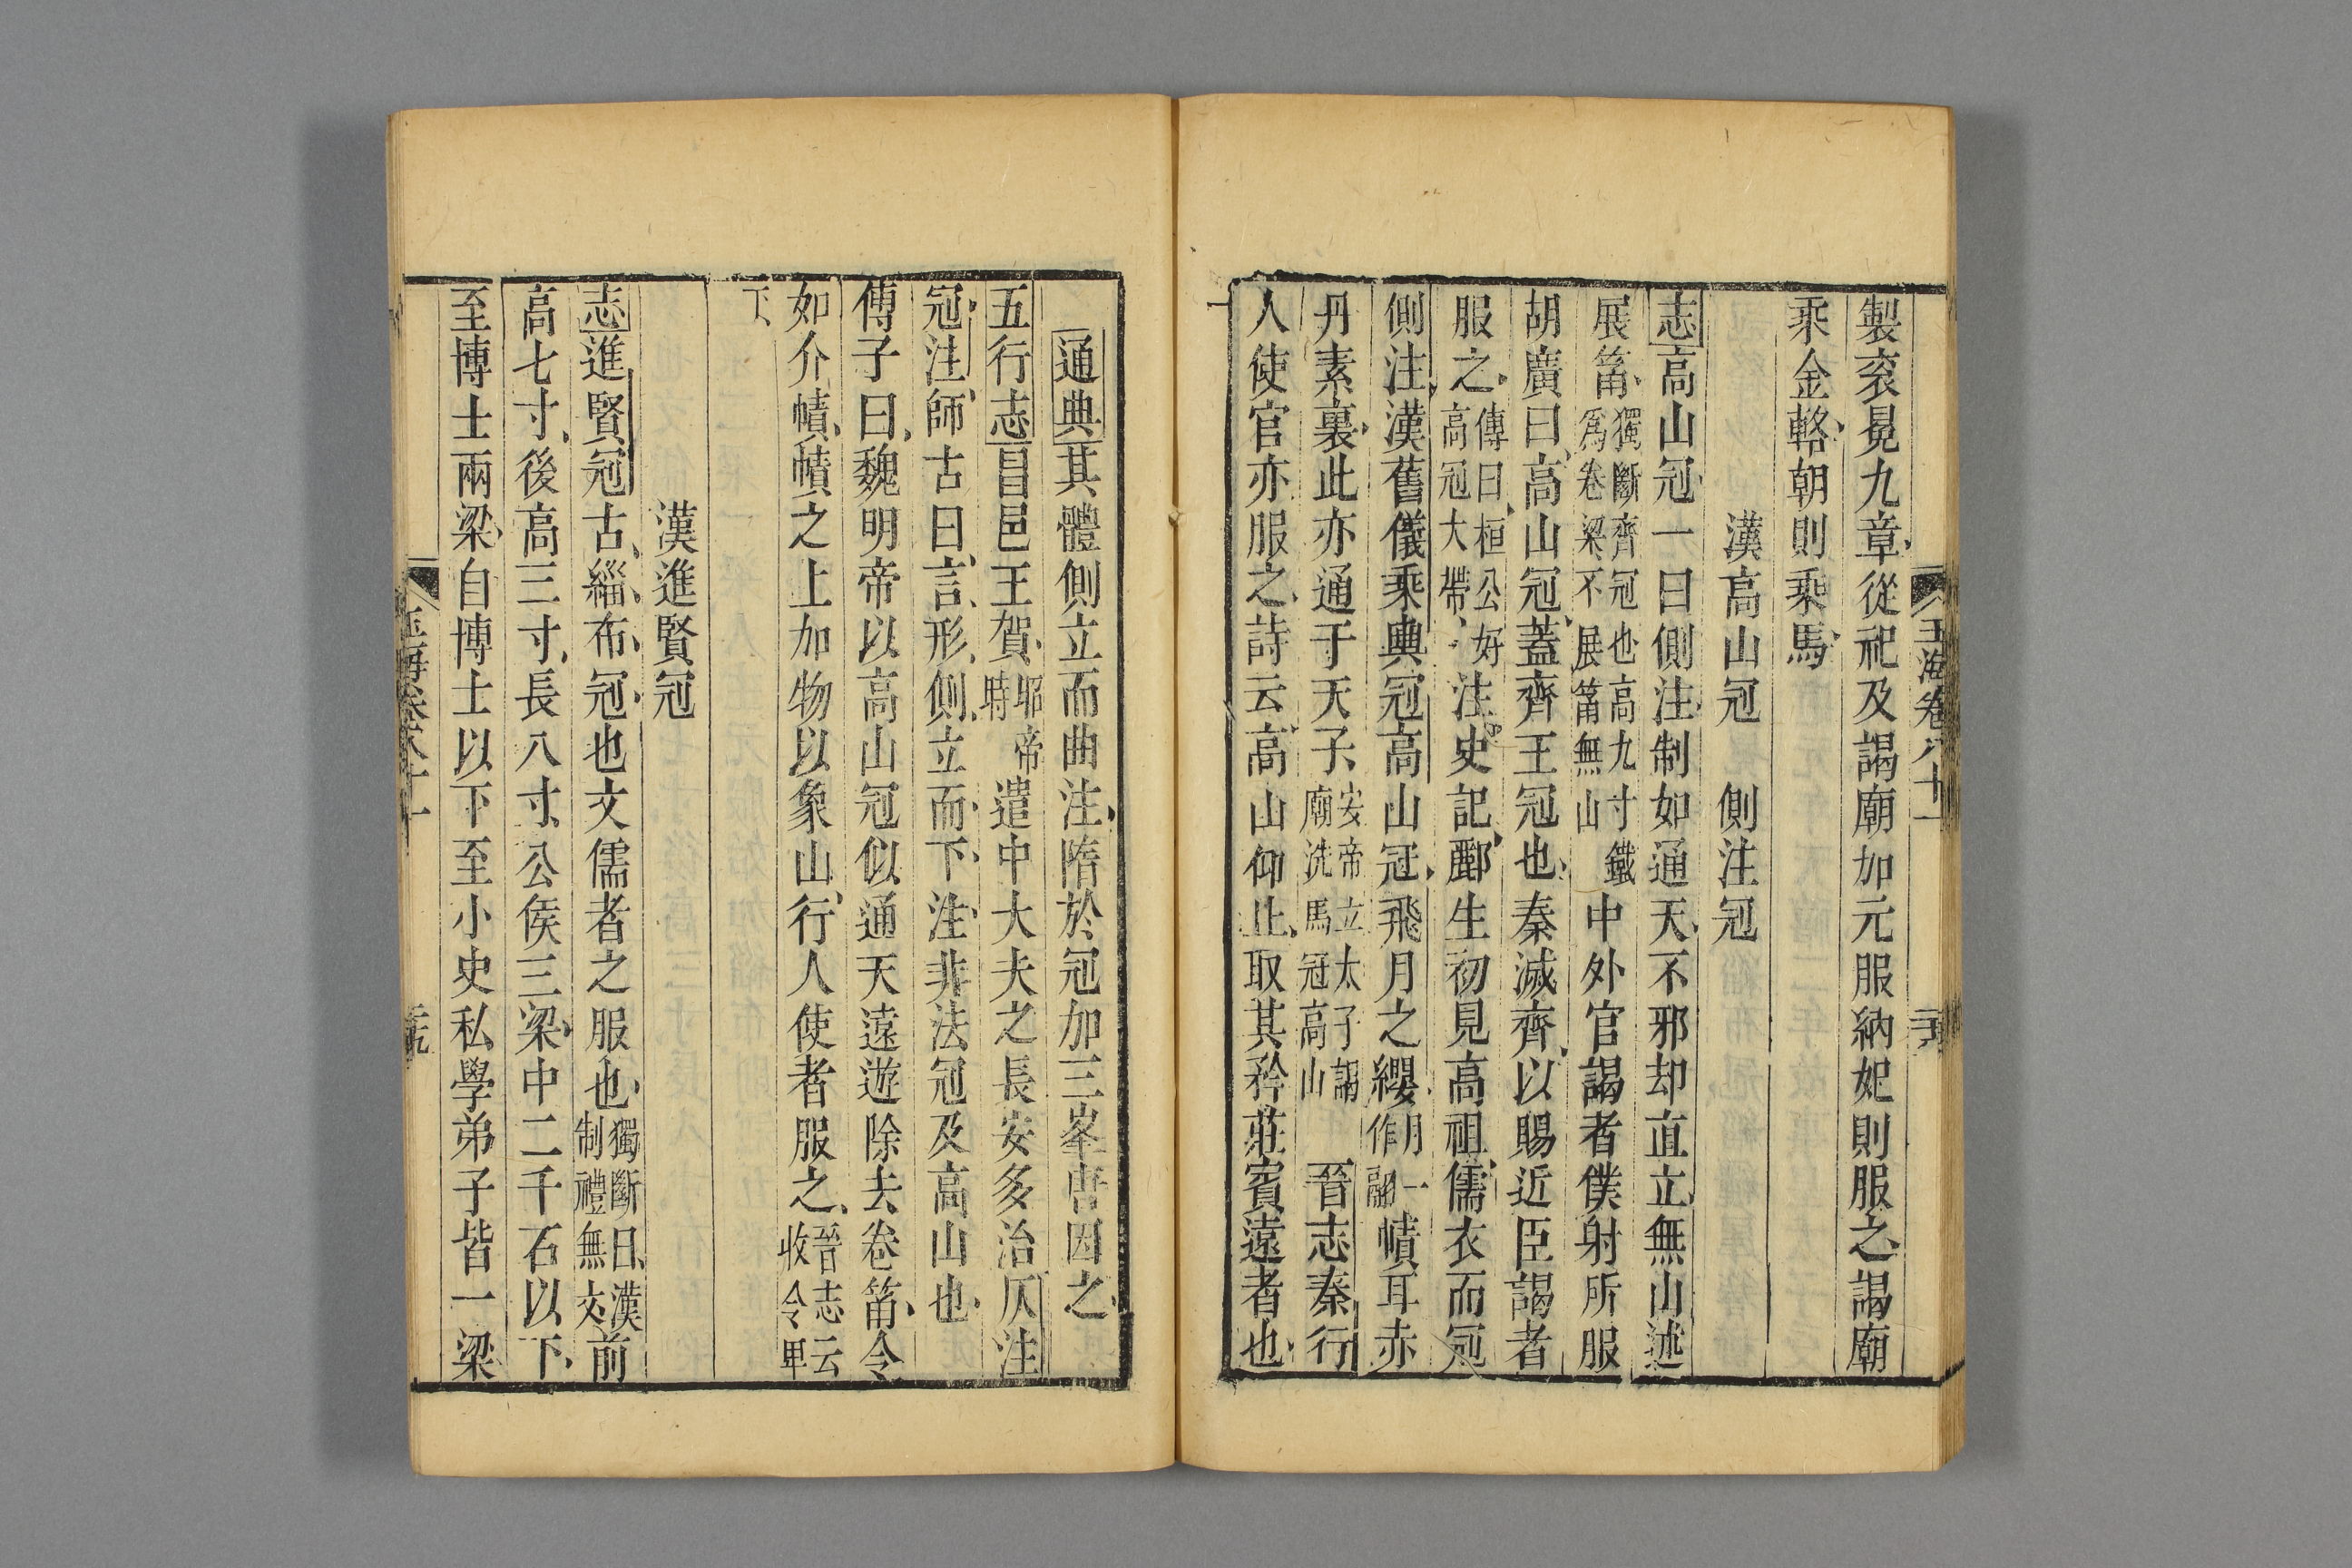 玉海卷八十一
製衮冕九章從祀及謁廟加元服納妃則服之謁廟
乘金輅朝則乘馬
漢高山冠 側注冠
志高山冠一曰側注制如通天不邪却直立無山述
展筩獨斷齊冠也高九寸鐵爲卷梁不展筩無山中外官謁者僕射所服
胡廣曰高山冠蓋齊王冠也秦滅齊以賜近臣謁者
服之傳曰桓公好高冠大帶注史記酈生初見高祖儒衣而冠
側注漢舊儀乘輿冠高山冠飛月之纓月一作翮幘耳赤
丹素裏此亦通于天子安帝立太子謁廟洗馬冠高山晉志秦行
人使官亦服之詩云高山仰止取其矜莊賓遠者也
通典其體側立而曲注隋於冠加三峯唐因之
五行志昌邑王賀昭帝時遣中大夫之長安多治仄注
冠注師古曰言形側立而下注非法冠及高山也
傅子曰魏明帝以高山冠似通天遠遊除去卷筩令
如介幘幘之上加物以象山行人使者服之晉志云收令卑
下
漢進賢冠
志進賢冠古緇布冠也文儒者之服也獨斷曰漢制禮無文前
高七寸後高三寸長八寸公侯三梁中二千石以下
至博士兩梁自博士以下至小史私學弟子皆一梁
玉海卷八十一